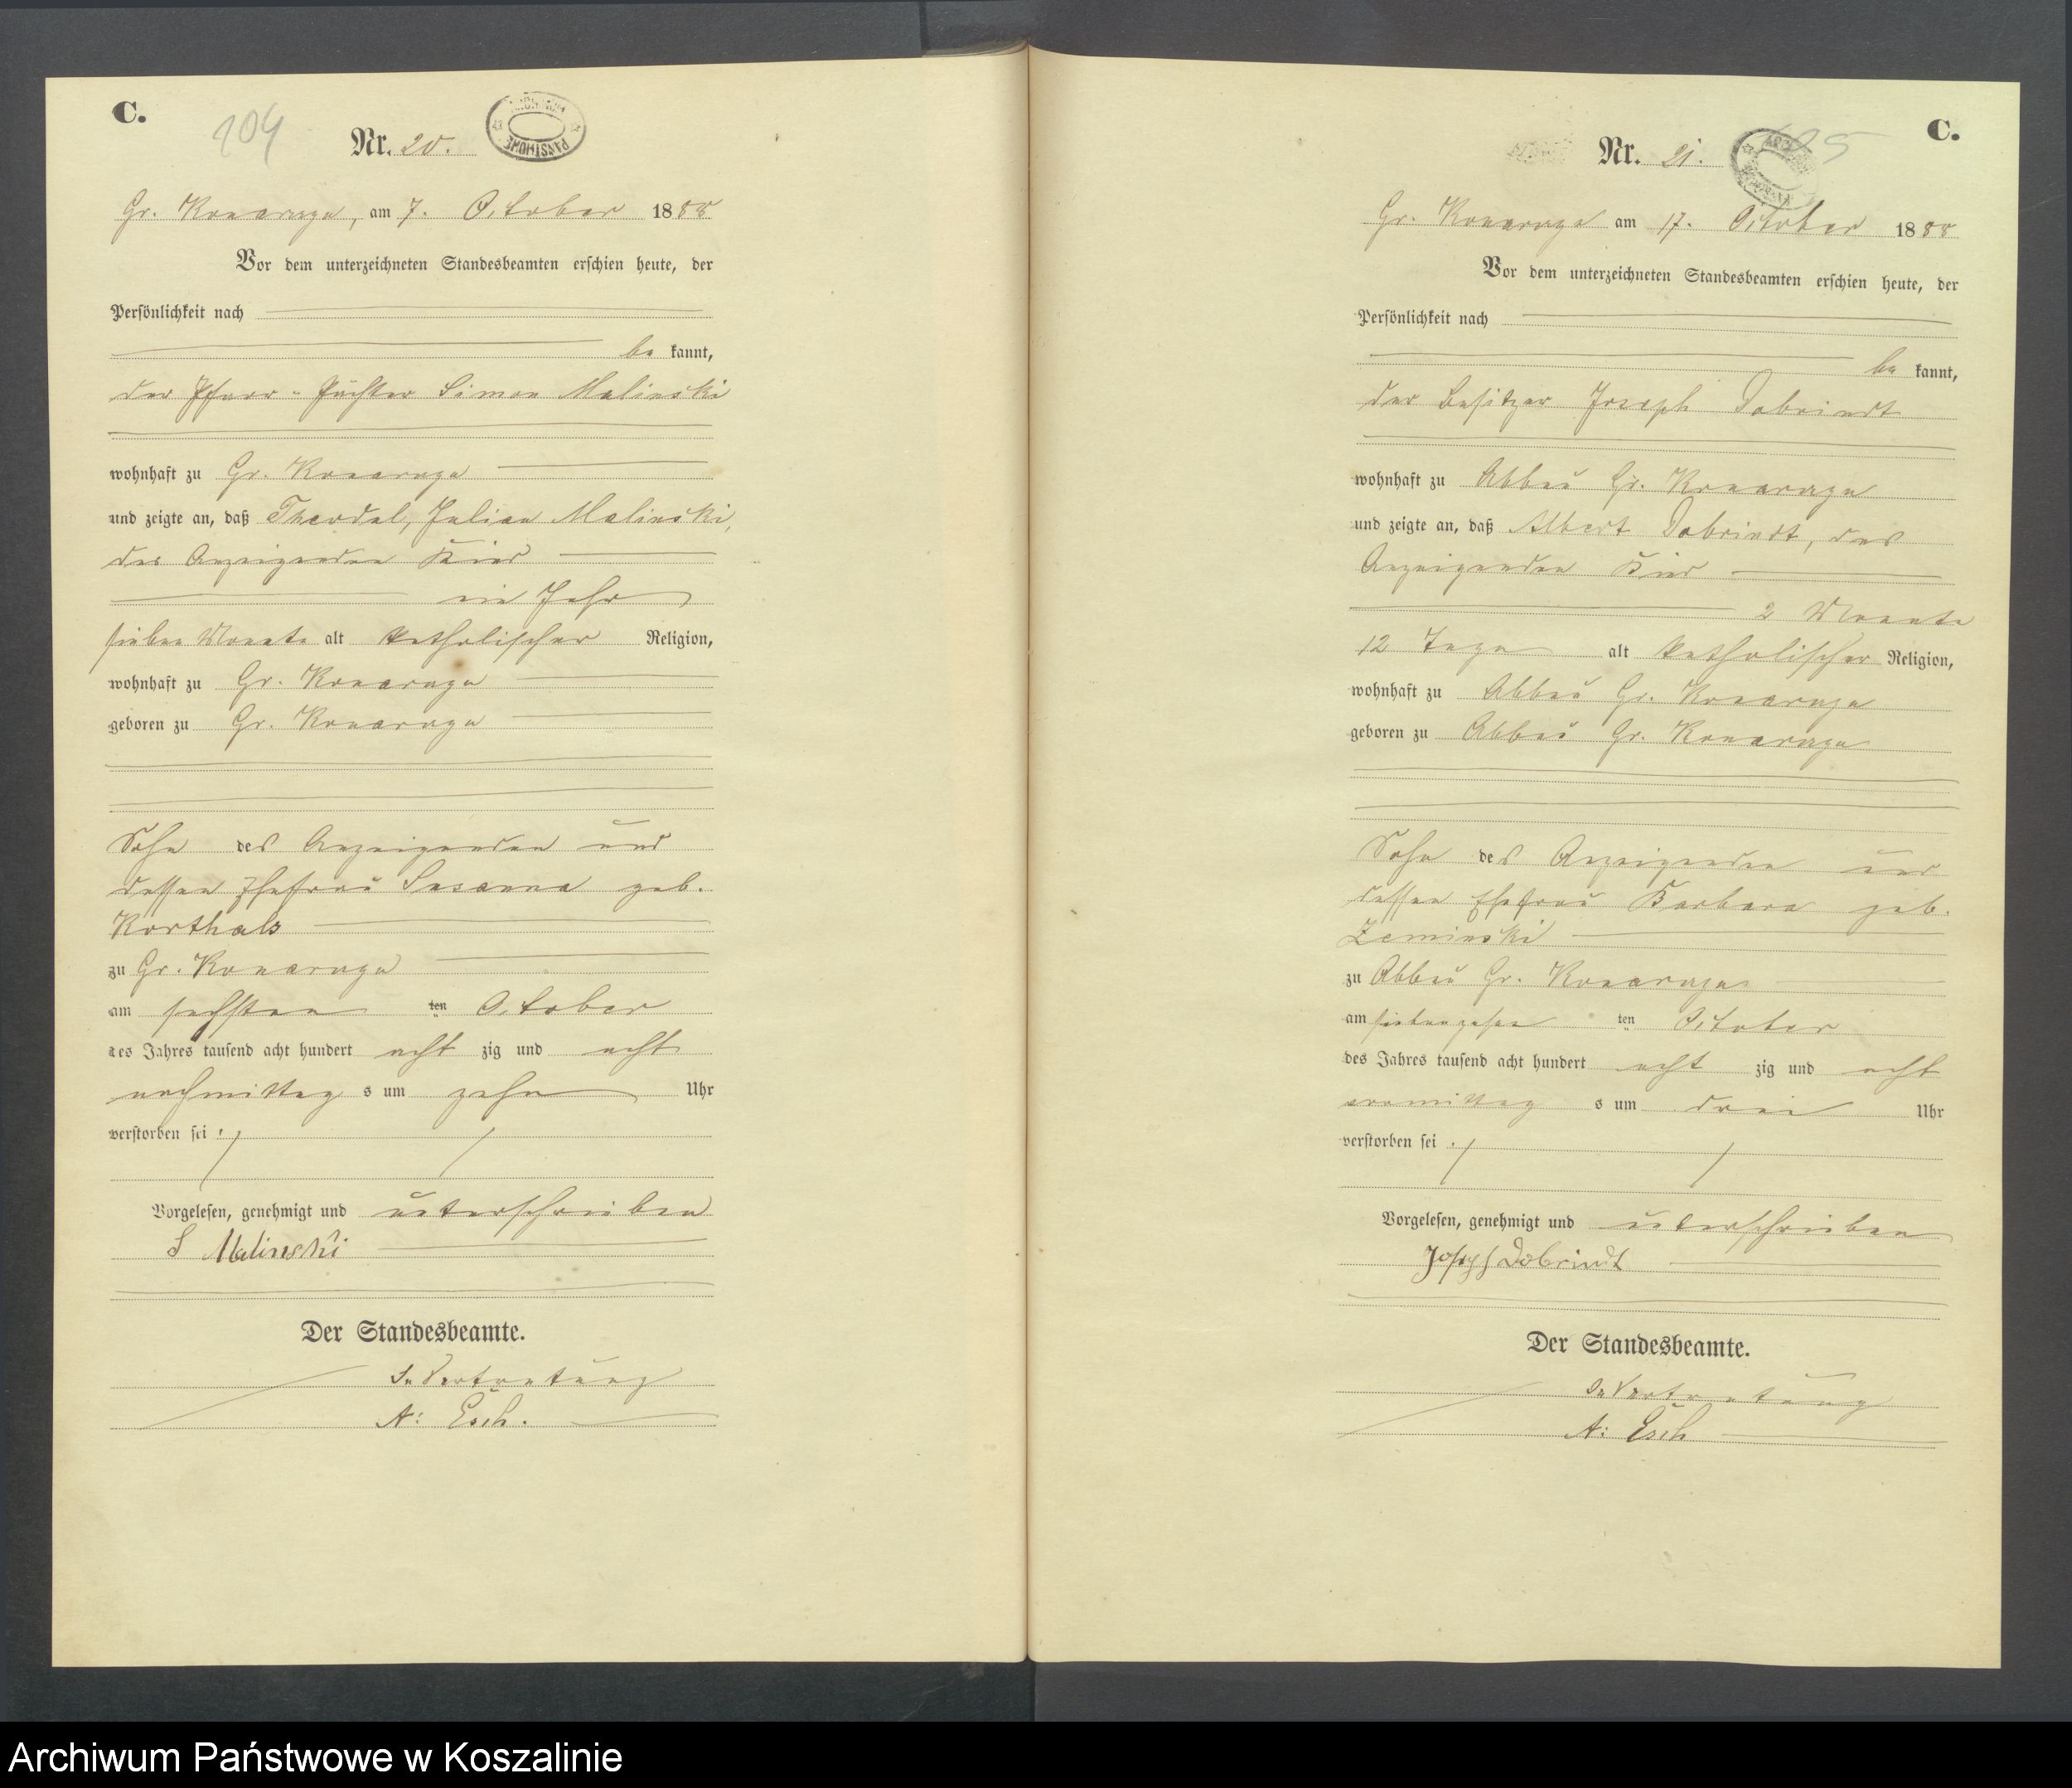 C.
104
Nr. 20.
ARCHIWUM PAŃSTWOWE
Gr. Konarczyn, am 7. October 1888
Vor dem unterzeichneten Standesbeamten erschien heute, der
Persönlichkeit nach
be kannt,
der Pfarr-Pächter Simon Malinski
wohnhaft zu Gr. Konarczyn
und zeigte an, daß Theodal, Julian Malinski,
des Anzeigenden Kind
ein Jahr
sieben Monate alt katholischer Religion,
wohnhaft zu Gr. Konarczyn
geboren zu Gr. Konarczyn
Sohn des Anzeigenden und
dessen Ehefrau Susanna geb.
Korthals
zu Gr. Konarczyn
am sechsten ten October
des Jahres tausend acht hundert acht zig und acht
nachmittag s um zehn Uhr
verstorben sei ./.
Vorgelesen, genehmigt und unterschrieben
S Malinski
Der Standesbeamte.
In Vertretung
A: Esch.
C.
Nr. 21.
Gr. Konarczyn am 17. October 1888
Vor dem unterzeichneten Standesbeamten erschien heute, der
Persönlichkeit nach
be kannt,
der Besitzer Joseph Dobrindt
wohnhaft zu Abbau Gr. Konarczyn
und zeigte an, daß Albert Dobrindt, des
Anzeigenden Kind
2 Monate
12 Tage alt katholischer Religion,
wohnhaft zu Abbau Gr. Konarczyn
geboren zu Abbau Gr. Konarczyn
Sohn des Anzeigenden und
dessen Ehefrau Barbara geb.
Zeminski
zu Abbau Gr. Konarczyn
am siebenzehn ten October
des Jahres tausend acht hundert acht zig und acht
vormittag s um drei Uhr
verstorben sei ./.
Vorgelesen, genehmigt und unterschrieben
Joseph Dobrindt
Der Standesbeamte.
In Vertretung
A: Esch
Archiwum Państwowe w Koszalinie